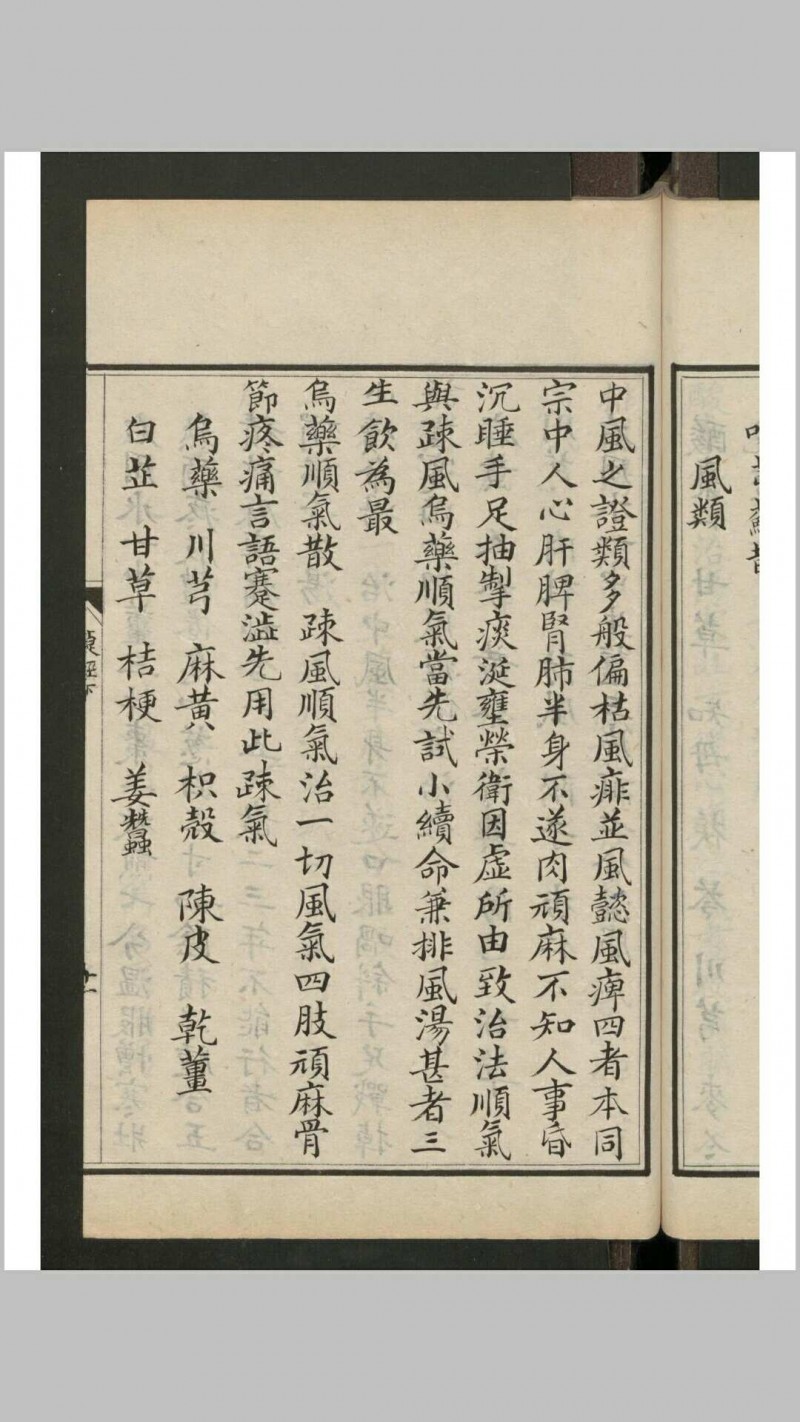 風類
中風之證類多般偏枯風痱並風懿風痺四者本同
宗中人心肝脾腎肺半身不遂肉頑麻不知人事昏
沉睡手足抽掣痰涎壅榮衛因虛所由致治法順氣
與疎風烏藥順氣當先試小續命兼排風湯甚者三
生飲為最
烏藥順氣散　疎風順氣治一切風氣四肢頑麻骨
節疼痛言語蹇澁先用此疎氣
烏藥　川芎　麻黄　枳殼　陳皮　乾薑
白芷　甘草　桔梗　姜蠶